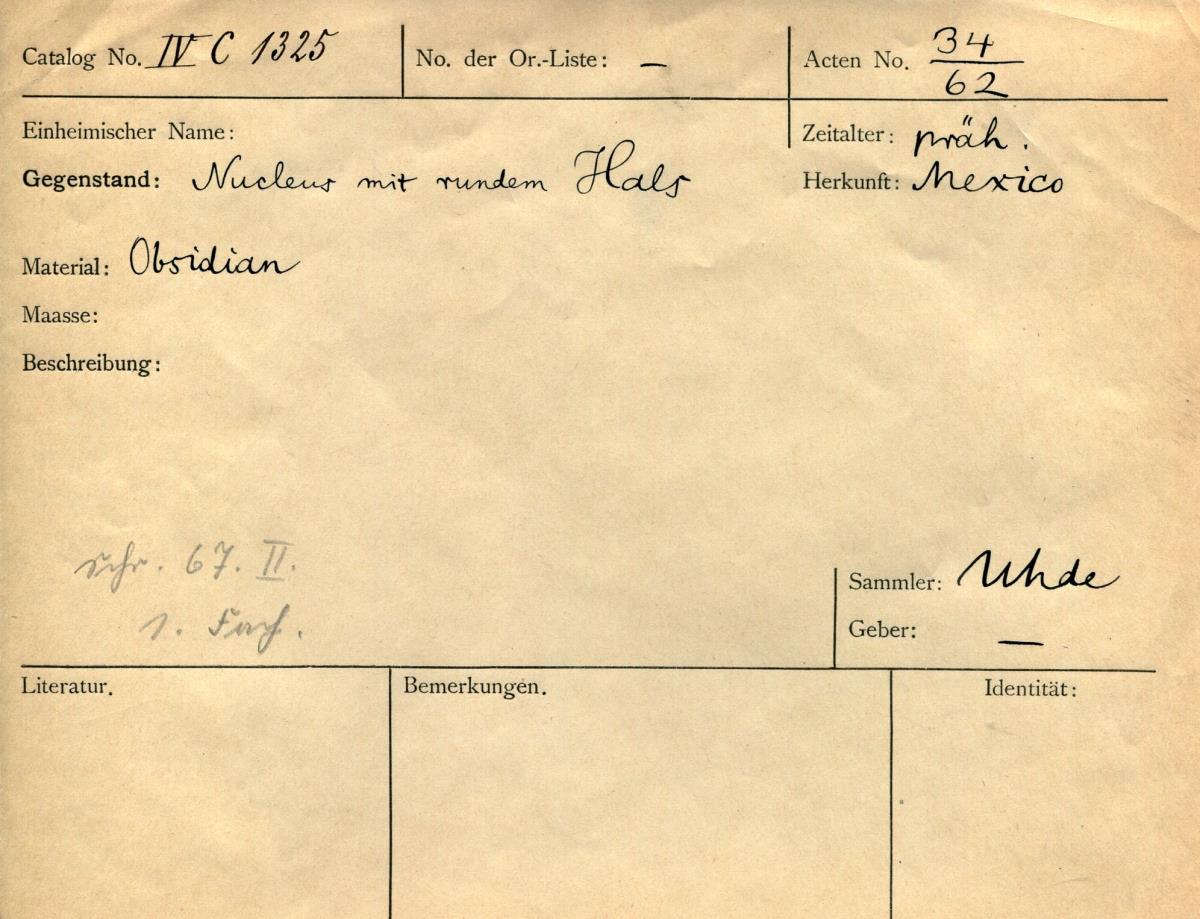 Catalog No. IV C 1325
No. der Or.-Liste: —
Acten No. 34/62
Einheimischer Name:
Zeitalter: präh.
Gegenstand: Nucleus mit rundem Hals
Herkunft: Mexico
Material: Obsidian
Maasse:
Beschreibung:
Schr. 67. II.
1. Fach.
Sammler: Uhde
Geber: —
Literatur.
Bemerkungen.
Identität: